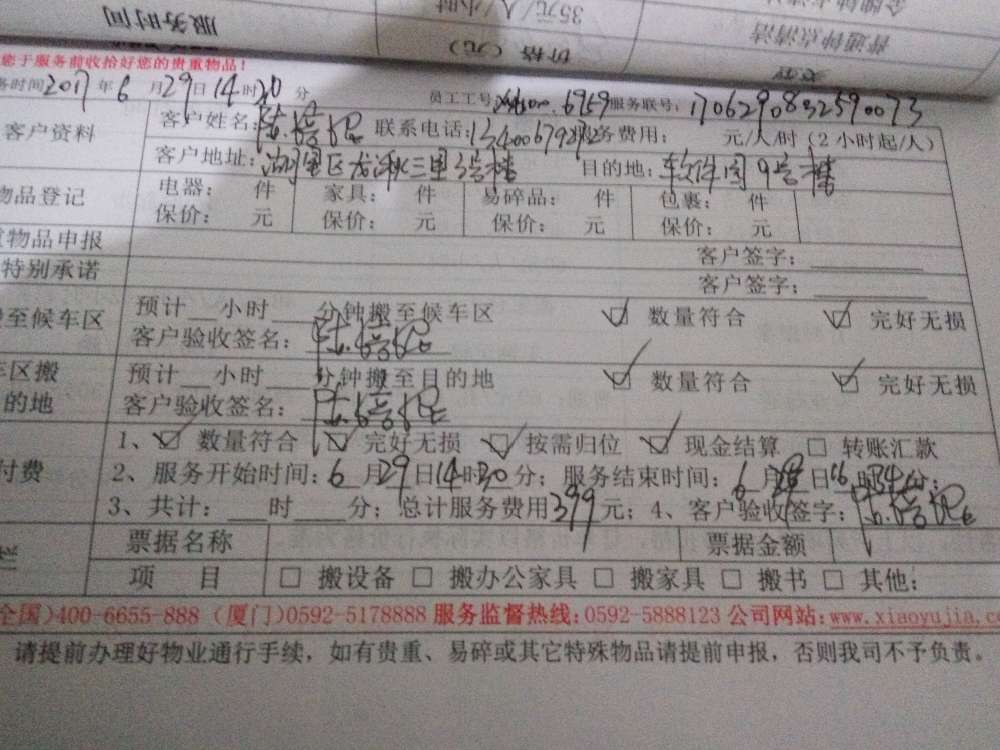 服务时间
价格（元）
35元/人/小时
普通钟点清洁
您于服务前收拾好您的贵重物品！
务时间2017年6月29日14时30分 员工工号: 6969 服务联号: 1706290832590073
客户资料 客户姓名: 联系电话: 务费用: 元/人/时（2小时起/人）
客户地址: 湖里区龙湫三里3号楼 目的地: 软件园9号楼
物品登记 电器: 件 家具: 件 易碎品: 件 包裹: 件
保价: 元 保价: 元 保价: 元 保价: 元
物品申报 客户签字:
特别承诺 客户签字:
至候车区 预计__小时____分钟搬至候车区 ☑ 数量符合 ☑ 完好无损
客户验收签名:
车区搬 预计__小时____分钟搬至目的地 ☑ 数量符合 ☑ 完好无损
的地 客户验收签名:
付费 1、☑ 数量符合 ☑ 完好无损 ☑ 按需归位 ☑ 现金结算 □ 转账汇款
2、服务开始时间: 6月29日14时30分; 服务结束时间: 6月29日16时34分;
3、共计: ___时____分; 总计服务费用399元; 4、客户验收签字:
栏 票据名称 票据金额
项 目 □ 搬设备 □ 搬办公家具 □ 搬家具 □ 搬书 □ 其他:
全国)400-6655-888 (厦门)0592-5178888 服务监督热线: 0592-5888123 公司网站: www.xiaoyujia.co
请提前办理好物业通行手续，如有贵重、易碎或其它特殊物品请提前申报，否则我司不予负责。